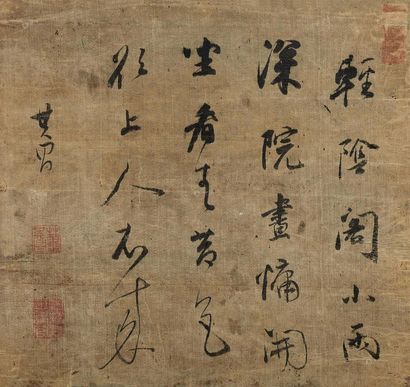 輕陰閣小雨
深院晝慵開
坐看蒼苔色
欲上人衣來
其昌